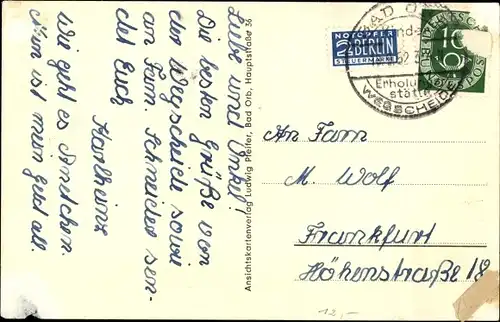 Liebe und Onkel!
Die besten Grüße von
der Wegscheide sowie
an Fam. Schneider sen-
det Euch
Karlheinz
Wie geht es Anetchen.
Nun ist mein Geld all.
Ansichtskartenverlag Ludwig Pfeifer, Bad Orb, Hauptstraße 36
NOTOPFER
2 BERLIN
STEUERMARKE
BAD
Erholungs
stätte
WEGSCHEIDE
10
An Fam.
M. Wolf
Frankfurt
Höhenstraße 18
12,-